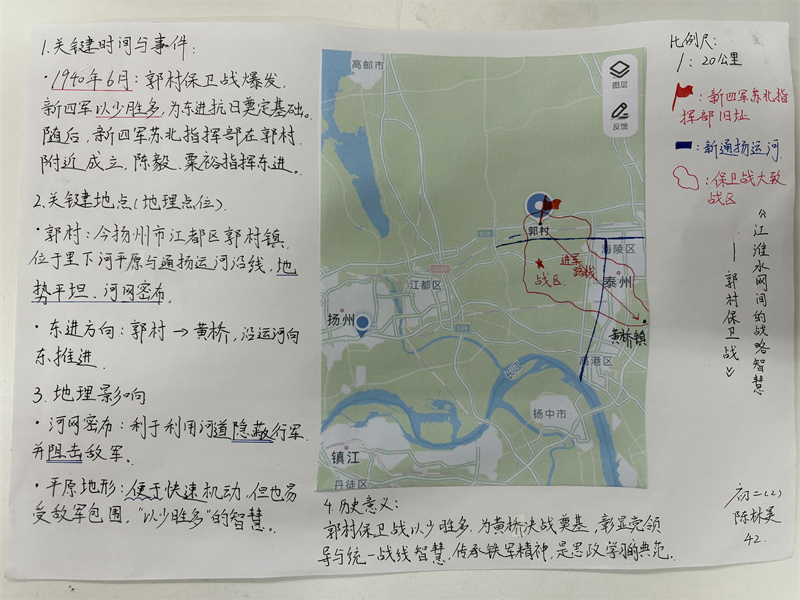 1.关键时间与事件：
·1940年6月：郭村保卫战爆发，
新四军以少胜多，为东进抗日奠定基础。
随后，新四军苏北指挥部在郭村
附近成立，陈毅、粟裕指挥东进。
2.关键地点（地理点位）
·郭村：今扬州市江都区郭村镇，
位于里下河平原与通扬运河沿线，地
势平坦、河网密布。
·东进方向：郭村→黄桥，沿运河向
东推进。
3.地理影响
·河网密布：利于利用河道隐蔽行军
并阻击敌军。
·平原地形：便于快速机动，但也易
受敌军包围，“以少胜多”的智慧。
高邮市
图层
反馈
郭村
海陵区
进军
路线
战区
泰州
江都区
扬州
黄桥镇
高港区
扬中市
镇江
丹徒区
4.历史意义：
郭村保卫战以少胜多，为黄桥决战奠基，彰显党领
导与统一战线智慧，传承铁军精神，是思政学习的典范。
比例尺：
1：20公里
：新四军苏北指
挥部旧址
：新通扬运河
：保卫战大致
战区
《江淮水网间的战略智慧
——郭村保卫战》
初二（2）
陈林美
42